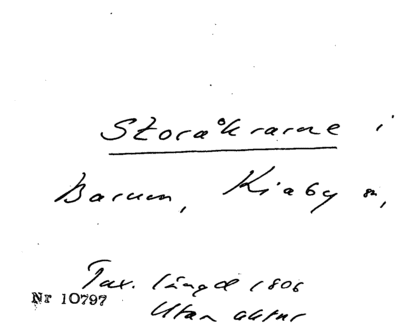 Storåkrarne i
Barum, Kiaby sn,
Tax. längd 1806
Nr 10797
Utan aktnr